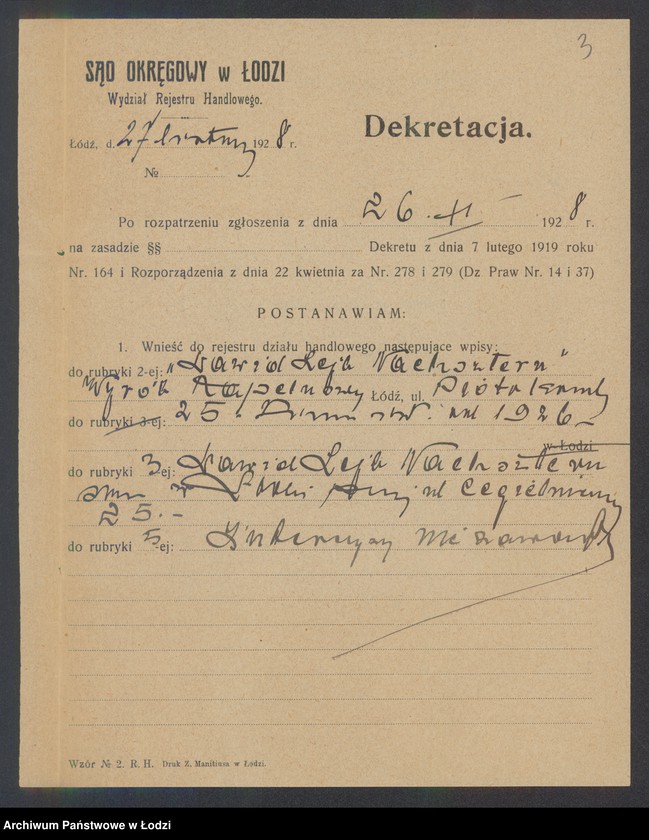 3
SĄD OKRĘGOWY w ŁODZI
Wydział Rejestru Handlowego.
Dekretacja.
Łódź, d. 27 1928 r.
№
Po rozpatrzeniu zgłoszenia z dnia 26.XI 1928 r.
na zasadzie §§ Dekretu z dnia 7 lutego 1919 roku
Nr. 164 i Rozporządzenia z dnia 22 kwietnia za Nr. 278 i 279 (Dz Praw Nr. 14 i 37)
POSTANAWIAM:
1. Wnieść do rejestru działu handlowego następujące wpisy:
do rubryki 2-ej: "Dawid Lejb Nachsztern"
Wyrób Łódź, ul. Piotrkowska
do rubryki 3-ej: 25. 1926
w Łodzi
do rubryki 3-ej: Dawid Lejb Nachsztern
w ul Cegielniana
25.-
do rubryki 5-ej:
Wzór № 2. R. H. Druk Z. Manitiusa w Łodzi.
Archiwum Państwowe w Łodzi